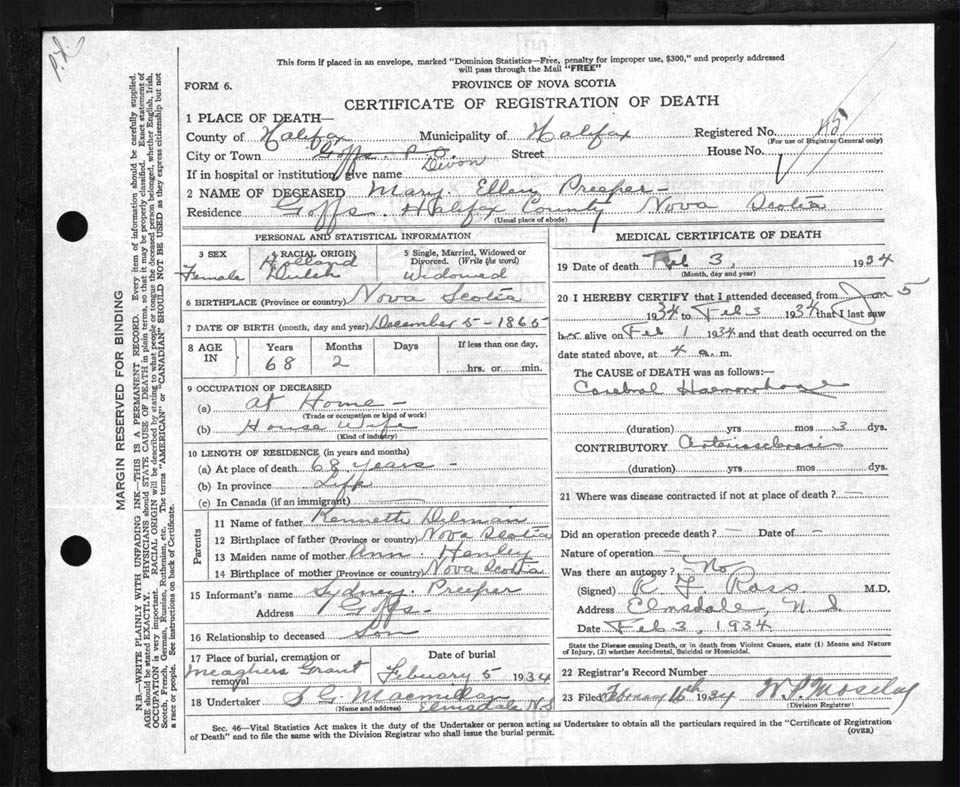 P.X.
This form if placed in an envelope, marked "Dominion Statistics—Free, penalty for improper use, $300," and properly addressed
will pass through the Mail "FREE"
FORM 6.
PROVINCE OF NOVA SCOTIA
CERTIFICATE OF REGISTRATION OF DEATH
1 PLACE OF DEATH—
County of Halifax Municipality of Halifax Registered No.
(For use of Registrar General only)
City or Town Goffs P.O. Street House No.
Devon
If in hospital or institution, give name
2 NAME OF DECEASED Mary Ellen Preeper
Residence Goffs Halifax County Nova Scotia
(Usual place of abode)
PERSONAL AND STATISTICAL INFORMATION
3 SEX Female
4 RACIAL ORIGIN Holland Dutch
5 Single, Married, Widowed or Divorced. (Write the word) Widowed
6 BIRTHPLACE (Province or country) Nova Scotia
7 DATE OF BIRTH (month, day and year) December 5-1865
8 AGE IN Years Months Days If less than one day,
68 2 hrs. or min.
9 OCCUPATION OF DECEASED
(a) At Home
(Trade or occupation or kind of work)
(b) House Wife
(Kind of industry)
10 LENGTH OF RESIDENCE (in years and months)
(a) At place of death 68 years
(b) In province Life
(c) In Canada (if an immigrant)
Parents
11 Name of father Kenneth
12 Birthplace of father (Province or country) Nova Scotia
13 Maiden name of mother Ann Henley
14 Birthplace of mother (Province or country) Nova Scotia
15 Informant's name Sydney Preeper
Address Goffs
16 Relationship to deceased Son
17 Place of burial, cremation or removal Meaghers Grant
Date of burial February 5 1934
18 Undertaker S G Macmillan
(Name and address) Elmsdale N.S
MEDICAL CERTIFICATE OF DEATH
19 Date of death Feb 3, 1934
(Month, day and year)
20 I HEREBY CERTIFY that I attended deceased from Jan 5
1934 to Feb 3 1934 that I last saw
her alive on Feb 1 1934 and that death occurred on
date stated above, at 4 a.m.
The CAUSE of DEATH was as follows:—
Cerebral Haemorrhage
(duration) yrs mos. 3 dys.
CONTRIBUTORY Arteriosclerosis
(duration) yrs mos. dys.
21 Where was disease contracted if not at place of death? —
Did an operation precede death? — Date of —
Nature of operation —
Was there an autopsy? No
(Signed) Ross M.D.
Address Elmsdale, N.S.
Date Feb 3, 1934
State the Disease causing Death, or in death from Violent Causes, state (1) Means and Nature
of Injury, (2) whether Accidental, Suicidal or Homicidal.
22 Registrar's Record Number
23 Filed February 16th 1934
(Division Registrar)
Sec. 46—Vital Statistics Act makes it the duty of the Undertaker or person acting as Undertaker to obtain all the particulars required in the "Certificate of Registration
of Death" and to file the same with the Division Registrar who shall issue the burial permit.
(OVER)
MARGIN RESERVED FOR BINDING
N.B.—WRITE PLAINLY WITH UNFADING INK—THIS IS A PERMANENT RECORD. Every item of information should be carefully supplied.
AGE should be stated EXACTLY. PHYSICIANS should STATE CAUSE OF DEATH in plain terms, so that it may be properly classified. Exact statement of
OCCUPATION is very important. RACIAL ORIGIN will be described by stating to what people or tongue the deceased person belonged, whether English, Irish,
Scotch, French, German, Russian, Ruthenian, etc. The terms "AMERICAN" or "CANADIAN" SHOULD NOT BE USED as they express citizenship but not
a race or people. See instructions on back of Certificate.